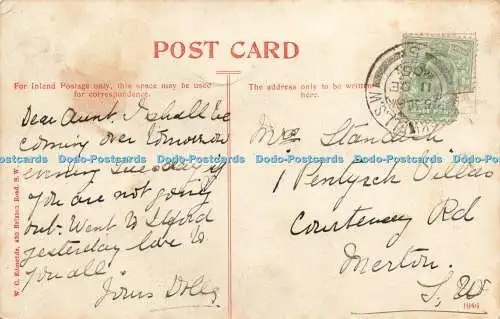 POST CARD
For Inland Postage only, this space may be used
for correspondence.
The address only to be written
here.
Dear Aunt. I shall be
coming over tomorrow
evening Tuesday if
you are not going
out. Went to
yesterday love to
you all
Yours Dolly
Mrs
1 Villas
Courtenay Rd
Merton
S. W.
W. C. Edmonds, Brixton Road, S.W.
Dodo-Postcards Dodo-Postcards Dodo-Postcards Dodo-Postcards Dodo-Postcards